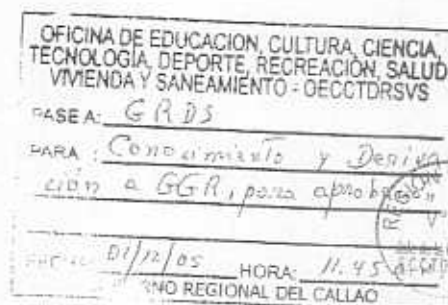 OFICINA DE EDUCACION, CULTURA, CIENCIA,
TECNOLOGÍA, DEPORTE, RECREACIÓN, SALUD
VIVIENDA Y SANEAMIENTO - OECCTDRSVS
PASE A: GRDS
PARA : Conocimiento y Deriva
ción a GGR, para aprobación
01/12/05 HORA: 11.45
RNO REGIONAL DEL CALLAO